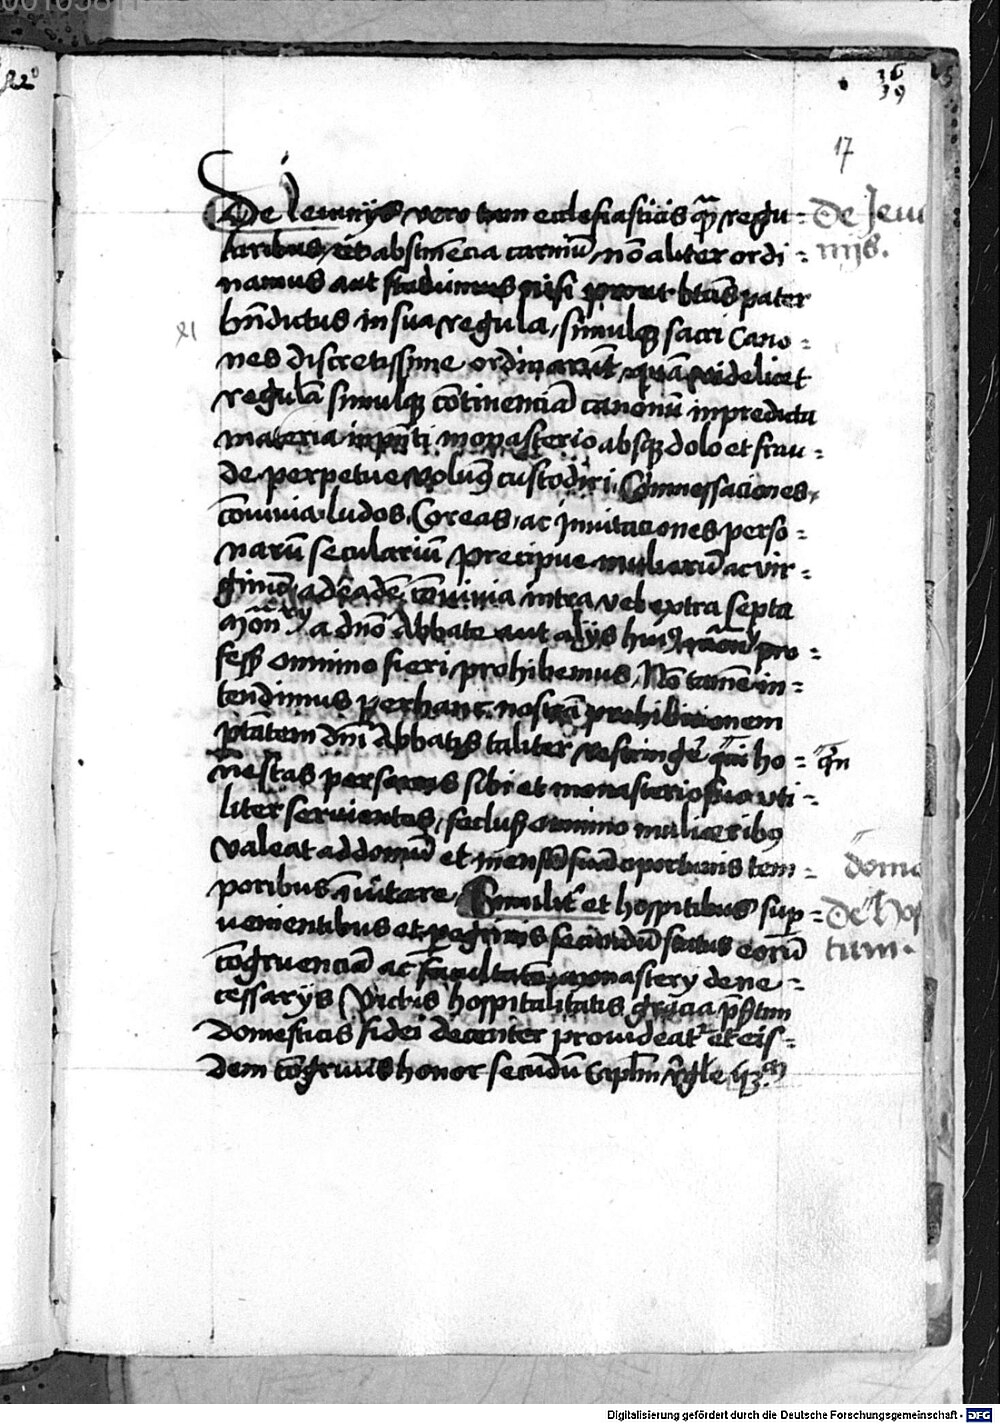 De Jeiunijs vero tam ecclesiasticis qȝ regu-
laribus, et abstinēcia carniū, nō aliter ordi-
namus aut statuimus nisi prout btūs pater
bn̄dictus in sua regula, simulqȝ sacri Cano-
nes discretissime ordinarūt, quā videlicet
regulā simulqȝ cōtinenciā canonū in predicta
materia in pn̄ti monasterio absqȝ dolo et frau-
de perpetue volumꝰ custodiri. Comessaciones,
cōuiuia, ludos, Coreas, ac Jnuitaciones perso-
narū seculariū precipue mulierū ac vir-
ginū, ad eadē cōuiuia intra vel extra septa
mōn̄rij a dn̄o Abbate aut alijs huiꝰ pro-
fess̄ omnino fieri prohibemus, Nō tamē in-
tendimus per hanc nostrā prohibitionem
ptātem dn̄i Abbatis taliter restringē ho-
nestas personas sibi et monasterio suo vti-
liter seruientes, seclusꝭ omnino mulieribꝰ
valeat ad domū et mensā suā oportunis tem-
poribus īuitare. Similiť et hospitibus sup-
uenientibus et pegrinis secundū status eorū
cōgruenciā ac facultatē monasterij de ne-
cessarijs victus hospitalitatis gracia pn̄tim
domesticis fidei decenter prouideatʳ et eis-
dem cōgruus honor secūdū Caplm̄ rgl̄e
De Jeiu
nijs.
domū
De Hos
tum.
XI
17
36
39
Digitalisierung gefördert durch die Deutsche Forschungsgemeinschaft - DFG